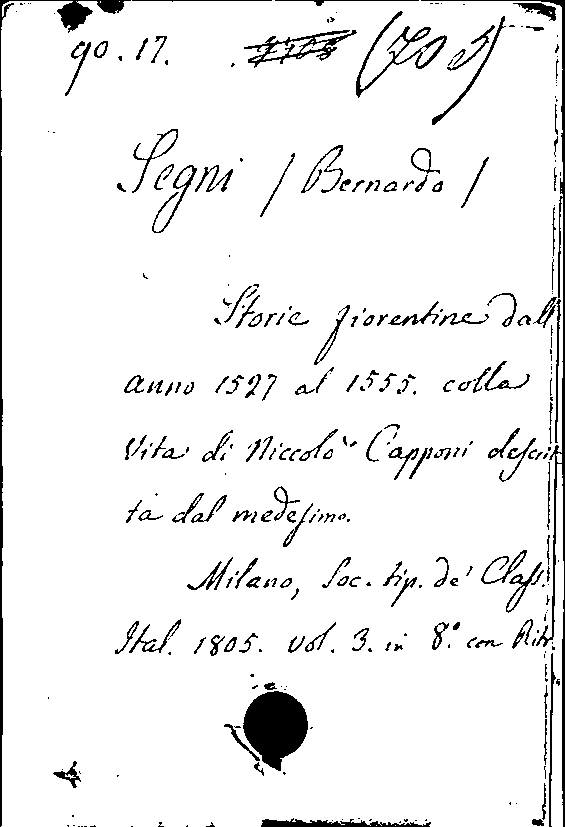 90.17. (705)
Segni / Bernardo /
Storie fiorentine dall
anno 1527 al 1555. colla
Vita di Niccolò Capponi descrit
ta dal medesimo.
Milano, Soc. tip. de' Class.
Ital. 1805. vol. 3. in 8.° con Ritr.